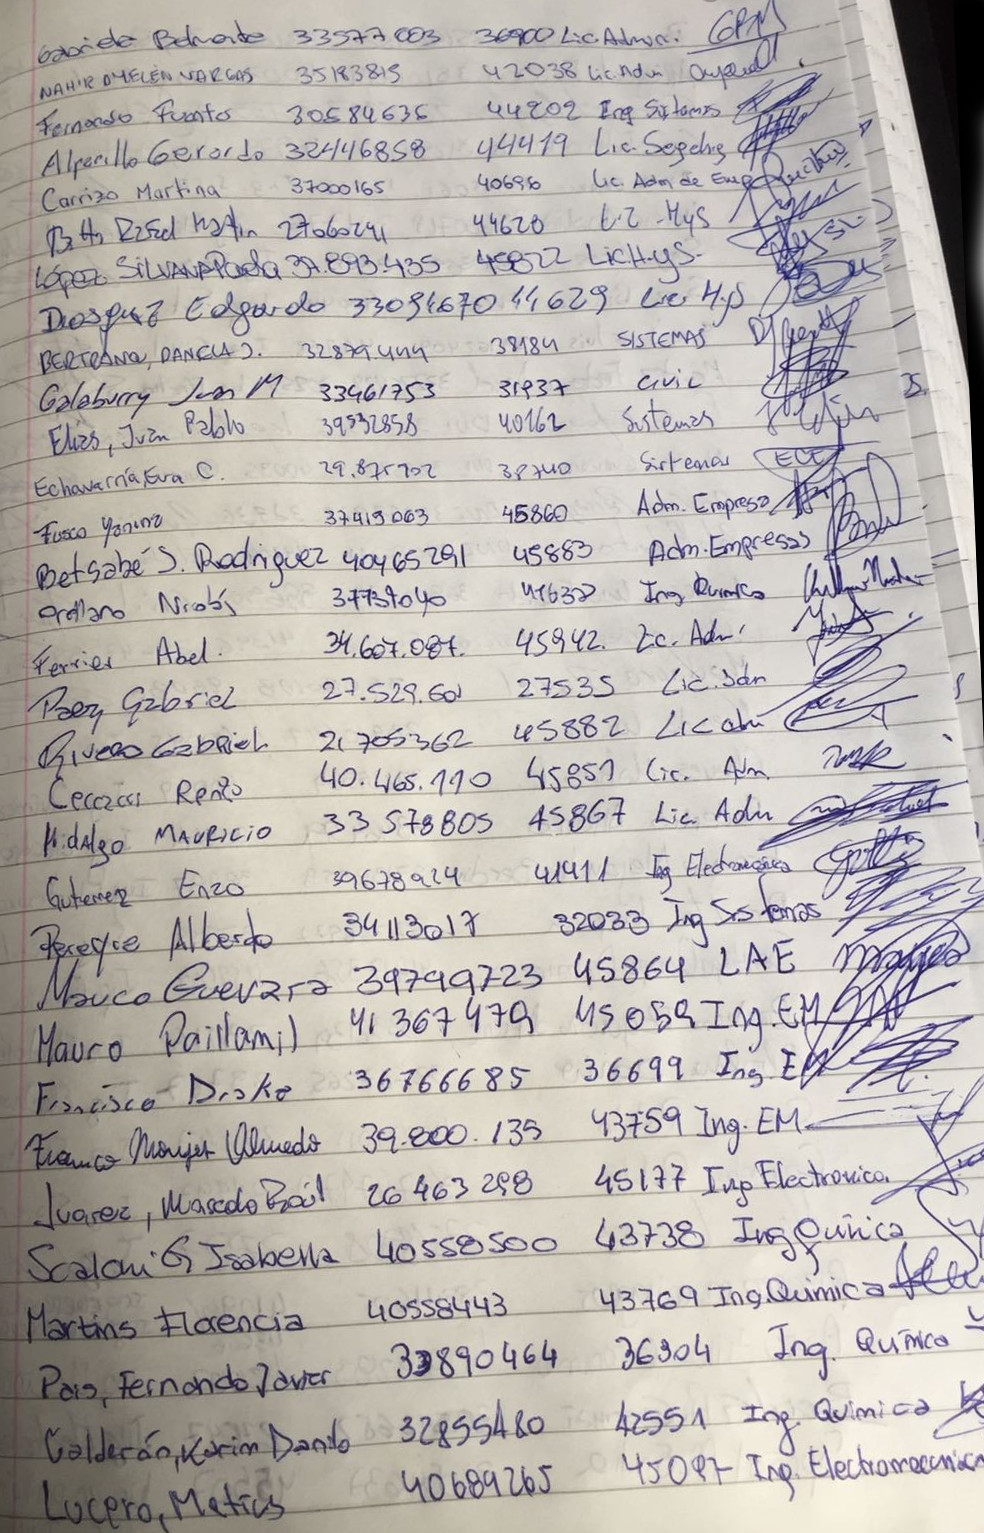 Gabriela Belmonte 33577003 36900 Lic. Admin. GBM
NAHIR AYELEN VARGAS 35183819 42038 Lic. Adm
Fernando Fuentes 30584636 44202 Ing Sistemas
Gerardo 32446858 44419 Lic.
Carrizo Martina 37000165 40696 Lic. Adm de Emp
27060291 44620 Lic HyS
López SILVANA Paola 37.893.435 45822 Lic H.yS.
Edgardo 33094670 44629 Lic. HyS
BERTRAND, DANIELA J. 32.879.444 38184 SISTEMAS
Galaburry Juan M 33461753 31937 civil
Elías, Juan Pablo 39532858 40162 Sistemas
Echavarría, Eva C. 29.875702 38740 Sistemas
Fusco Yanina 37419063 45860 Adm. Empresa
Betsabé S. Rodriguez 40465291 45883 Adm. Empresas
Orellano Nicolás 37739040 41632 Ing Quimica
Ferrier Abel. 34.607.087. 45942. Lic. Adm
Paez Gabriel 27.529.601 27535 Lic. Adm
Rivero Gabriel 21705362 45882 Lic adm
Renzo 40.465.110 45851 Lic. Adm
Hidalgo MAURICIO 33578805 45867 Lic. Adm
Gutierrez Enzo 39678924 41411 Ing Electromecánica
Pereyra Alberdo 34113017 32033 Ing Sistemas
Mauco Guevara 39749723 45864 LAE
Mauro Paillamil 41367479 45059 Ing. EM
Francisco Drake 36766685 36699 Ing. EM
Franco Monjes Olmedo 39.800.135 43759 Ing. EM
Juarez, Marcelo Raúl 26463298 45177 Ing Electronica.
Scaloni G Isabella 40558500 43738 Ing Química
Martins Florencia 40558443 43769 Ing. Química
Pais, Fernando Javier 33890464 36304 Ing. Química
Calderón, Karim Danilo 32855480 42551 Ing. Química
Lucero, Matias 40689265 45097 Ing. Electromecánica